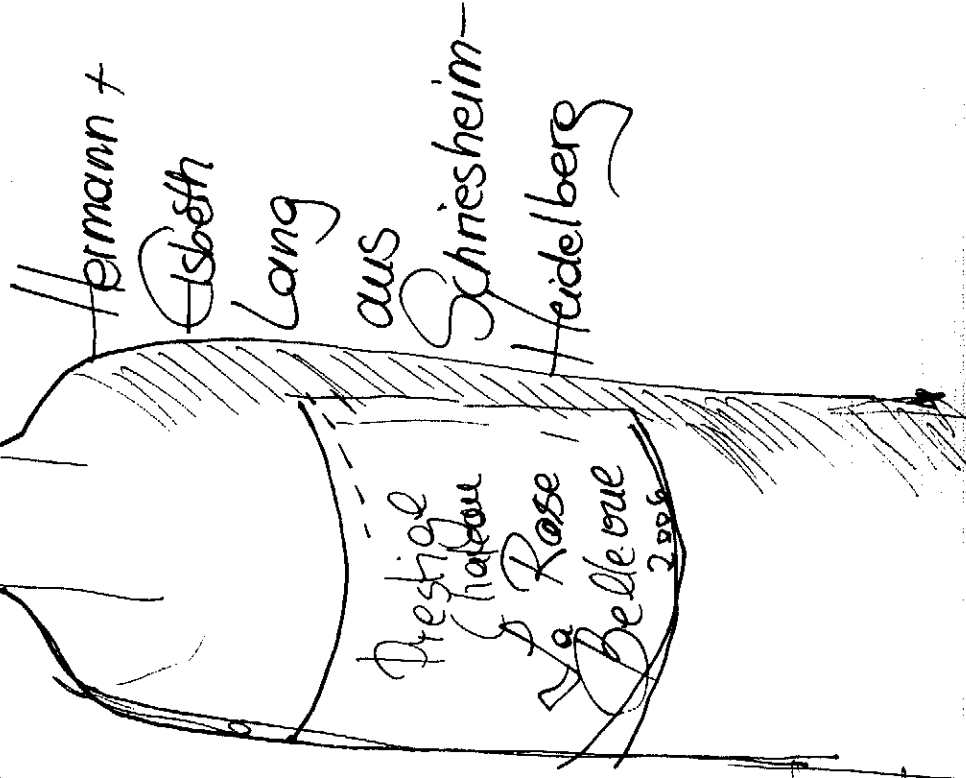 Hermann +
Elsbeth
Lang
aus
Schriesheim-
Heidelberg
Prestige
Chateau
La Rose
Bellevue
2006